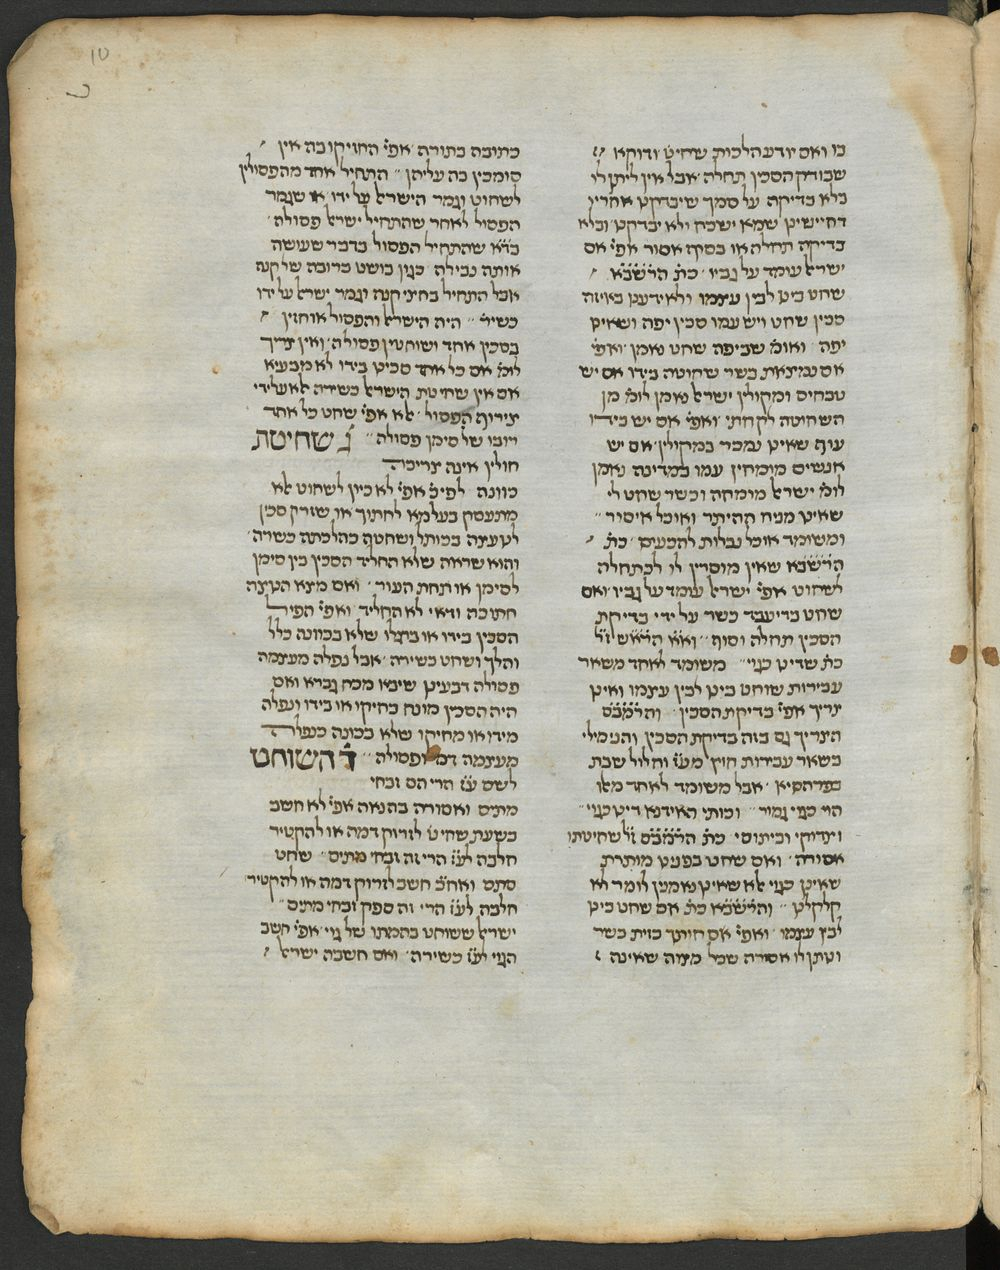 10
כו ואם יודע הלכות שחיט׳ ודוקא
שבודק הסכין תחלה אבל אין ליתן לו
בלא בדיקה על סמך שיבדקנו אחרין
דחיישינן שמא ישכח ולא יבדקנו ובלא
בדיקה תחלה או בסוף אסור אפי׳ אם
ישראל עומד על גביו כת׳ הרשב״א
שחט בינו לבין עצמו ולא ידענו באיזה
סכין שחט ויש עמו סכין יפה ושאינו
יפה ואומ׳ שביפה שחט נאמן ואפי׳
אם נמצאת בשר שחוטה בידו אם יש
טבחים ומקולין ישראל נאמן לומ׳ מן
השחוטה לקחתי ואפי׳ אם יש בידו
עוף שאינו נמכר במקולין אם יש
אנשים מומחין עמו במדינה נאמן
לומ׳ ישראל מומחה וכשר שחט לי
שאינו מניח ההיתר ואוכל איסור
ומשומד אוכל נבלות להכעיס כת׳
הרשב״א שאין מוסרין לו לכתחלה
לשחוט אפי׳ ישראל עומד על גביו ואם
שחט בדיעבד כשר על ידי בדיקת
הסכין תחלה וסוף וא״א הרא״ש ז״ל
כת׳ שדינו כגוי משומד לאחד משאר
עבירות שוחט בינו לבין עצמו ואינו
צריך אפי׳ בדיקת הסכין והרמב״ם
הצריך גם בזה בדיקת הסכין והנ״מילי
בשאר עבירות חוץ מע״ז וחלול שבת
בפרהסיא אבל משומד לאחד מאו
הוי כגוי גמור וכותי האידנא דינו כגוי
וצדוקי וביתוסי כת׳ הרמב״ם ז״ל שחיטתו
אסורה ואם שחט בפנינו מותרת
שאינו כגוי אלא שאינו נאמן לומר לא
קלקלתי והרשב״א כת׳ אם שחט בינו
לבין עצמו ואפי׳ אם חותך כזית בשר
ונתן לו אסורה שכל מצוה שאינה
כתובה בתורה אפי׳ החזיקו בה אין
סומכין בה עליהן התחיל אחד מהפסולין
לשחוט וגמר הישראל על ידו או שגמר
הפסול לאחר שהתחיל ישראל פסולה
בד״א שהתחיל הפסול בדבר שעושה
אותה נבילה כגון בושט ברובה של קנה
אבל התחיל בחצי קנה וגמר ישראל על ידו
כשיר היה הישראל והפסול אוחזין
בסכין אחד ושוחטין פסולה ואין צריך
לומ׳ אם כל אחד סכינו בידו לא מבעיא
אם אין שחיטת הישראל כשירה אלא על ידי
צירוף הפסול אלא אפי׳ שחט כל אחד
רובו של סימן פסולה ג שחיטת
חולין אינה צריכה
כוונה לפיכ׳ אפי׳ לא כיון לשחוט אלא
מתעסק בעלמא לחתוך או שזרק סכין
לנועצה בכותל ושחטה כהלכתה כשרה
והוא שראה שלא החליד הסכין בין סימן
לסימן או תחת העור ואם מצא הנוצה
חתוכה ודאי לא החליד ואפי׳ הפיל
הסכין בידו או ברגלו שלא בכוונה כלל
והלך ושחט כשירה אבל נפלה מעצמה
פסולה דבעינן שיבא מכח גברא ואם
היה הסכין מונח בחיקו או בידו ונפלה
מידו או מחיקו שלא בכונה כנפלה
מעצמה דמי ופסולה ד השוחט
לשם ע״ז הרי הם זבחי
מתים ואסורה בהנאה אפי׳ לא חשב
בשעת שחיט׳ לזרוק דמה או להקטיר
חלבה לע״ז הרי זה זבחי מתים שחט
סתם ואח״כ חשב לזרוק דמה או להקטיר
חלבה לע״ז הרי זה ספק זבחי מתים
ישראל ששוחט בהמתו של גוי אפי׳ חשב
הגוי לע״ז כשירה ואם חשבה ישראל